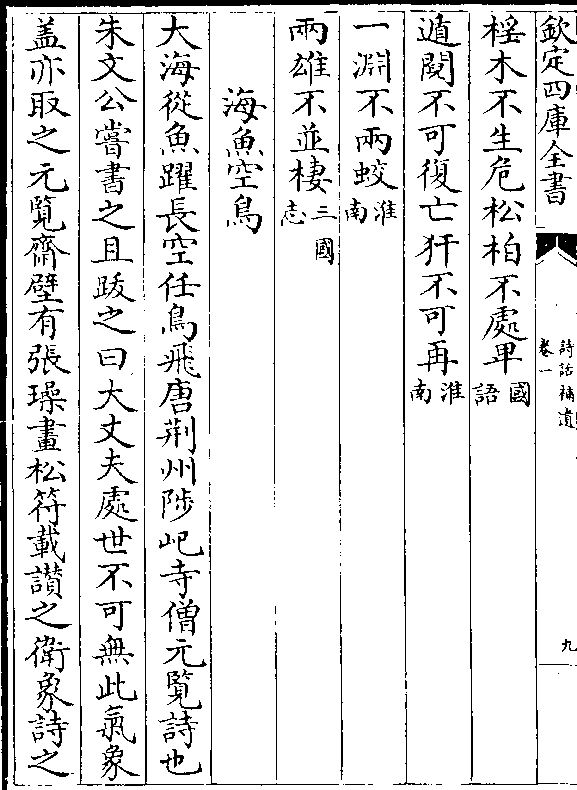 欽定四庫全書
詩話補遺
卷一
九
榣木不生危松柏不處卑國語
遁閱不可復亡犴不可再淮南
一淵不兩蛟淮南
兩雄不並棲三國志
海魚空鳥
大海從魚躍長空任鳥飛唐荆州陟屺寺僧元覽詩也
朱文公嘗書之且跋之曰大丈夫處世不可無此氣象
盖亦取之元覽齋壁有張璪畫松符載讃之衛象詩之